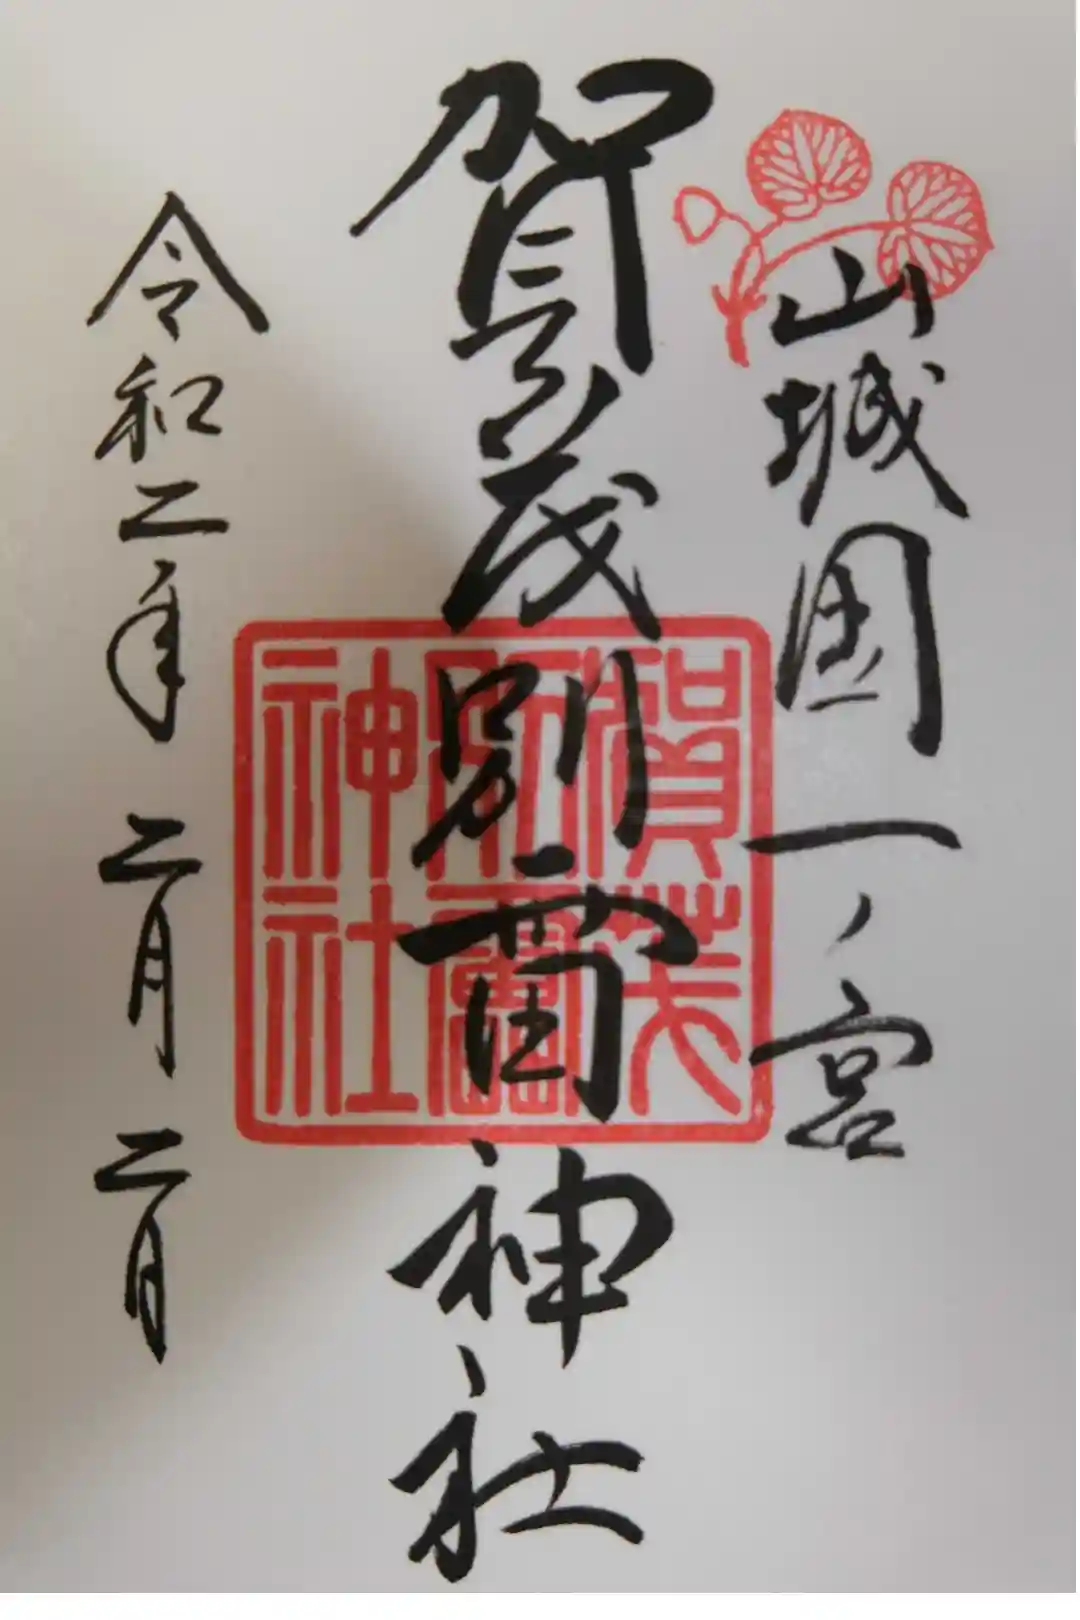 山城国一ノ宮
賀茂別雷神社
賀茂
別雷
神社
令和二年二月二日